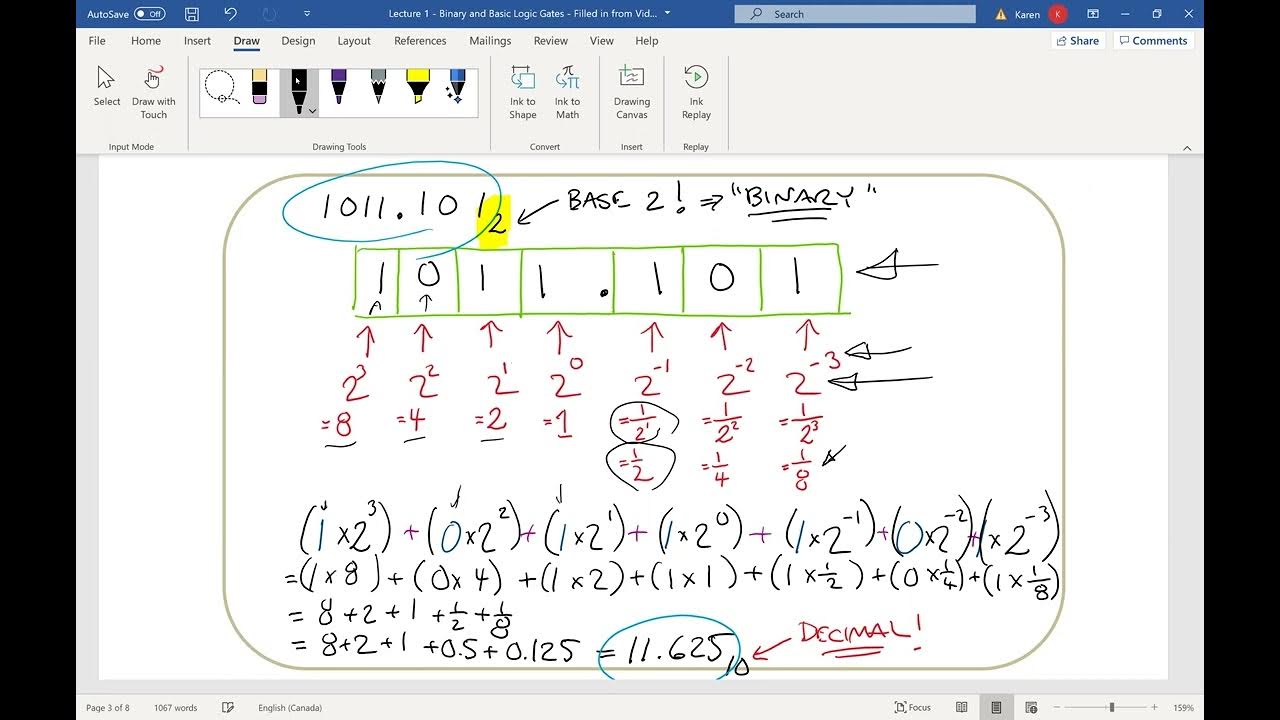 AutoSave Off Lecture 1 - Binary and Basic Logic Gates - Filled in from Vid... Search Karen K
File Home Insert Draw Design Layout References Mailings Review View Help Share Comments
Select Draw with Touch Ink to Shape Ink to Math Drawing Canvas Ink Replay
Input Mode Drawing Tools Convert Insert Replay
1011.101₂ ← BASE 2! ⇒ "BINARY"
1 0 1 1 . 1 0 1
↑ ↑ ↑ ↑ ↑ ↑ ↑
2³ 2² 2¹ 2⁰ 2⁻¹ 2⁻² 2⁻³
=8 =4 =2 =1 =1/2¹ =1/2² =1/2³
=1/2 =1/4 =1/8
(1×2³)+(0×2²)+(1×2¹)+(1×2⁰)+(1×2⁻¹)+(0×2⁻²)+(1×2⁻³)
=(1×8)+(0×4)+(1×2)+(1×1)+(1×1/2)+(0×1/4)+(1×1/8)
=8+2+1+1/2+1/8
=8+2+1+0.5+0.125=11.625₁₀ ← DECIMAL!
Page 3 of 8 1067 words English (Canada) Focus 159%